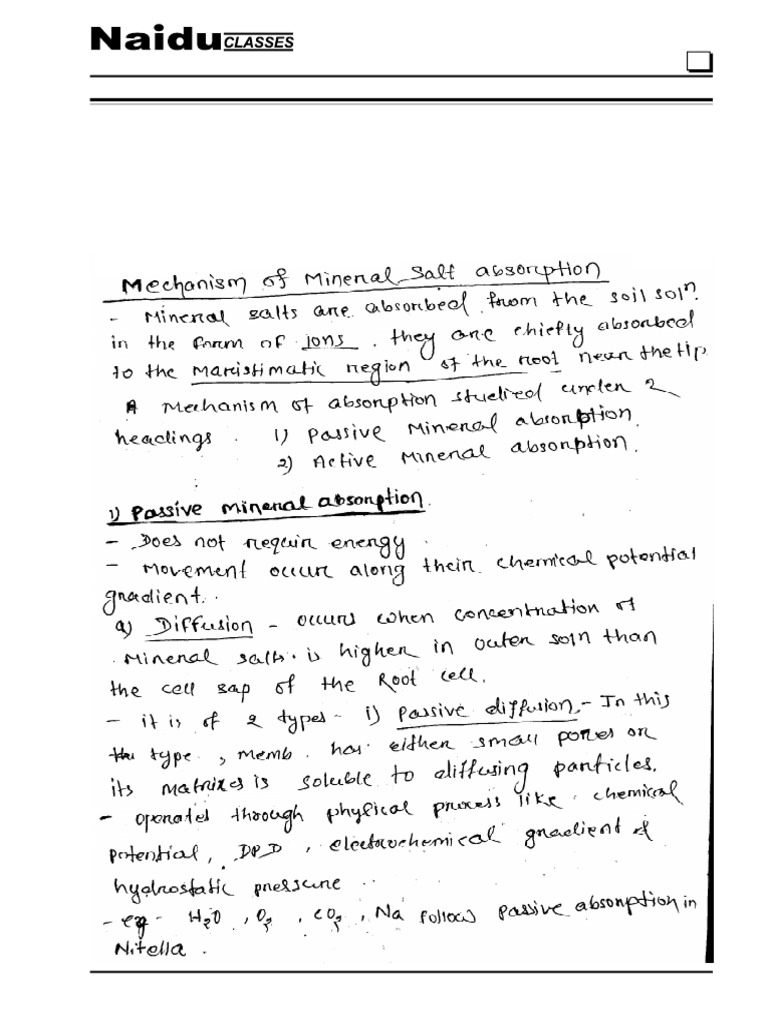 Naidu CLASSES
Mechanism of Mineral Salt absorption
- Mineral salts are absorbed from the soil solⁿ.
in the form of ions. they are chiefly absorbed
to the Maristimatic region of the root near the tip
A Mechanism of absorption studied under 2
headings. 1) Passive Mineral absorption.
2) Active Mineral absorption.
1) Passive mineral absorption.
- Does not requir energy.
- Movement occur along their chemical potential
gradient.
a) Diffusion - occurs when concentration of
Mineral salts is higher in outer soln than
the cell sap of the Root cell.
- it is of 2 types - i) Passive diffusion - In this
the type, memb. has either small pores or
its Matrixes is soluble to diffusing particles.
- operates through physical process like chemical
potential, DPD, electrochemical gradient &
hydrostatic pressure
- eg - H2O, O2, CO2, Na follows Passive absorption in
Nitella.